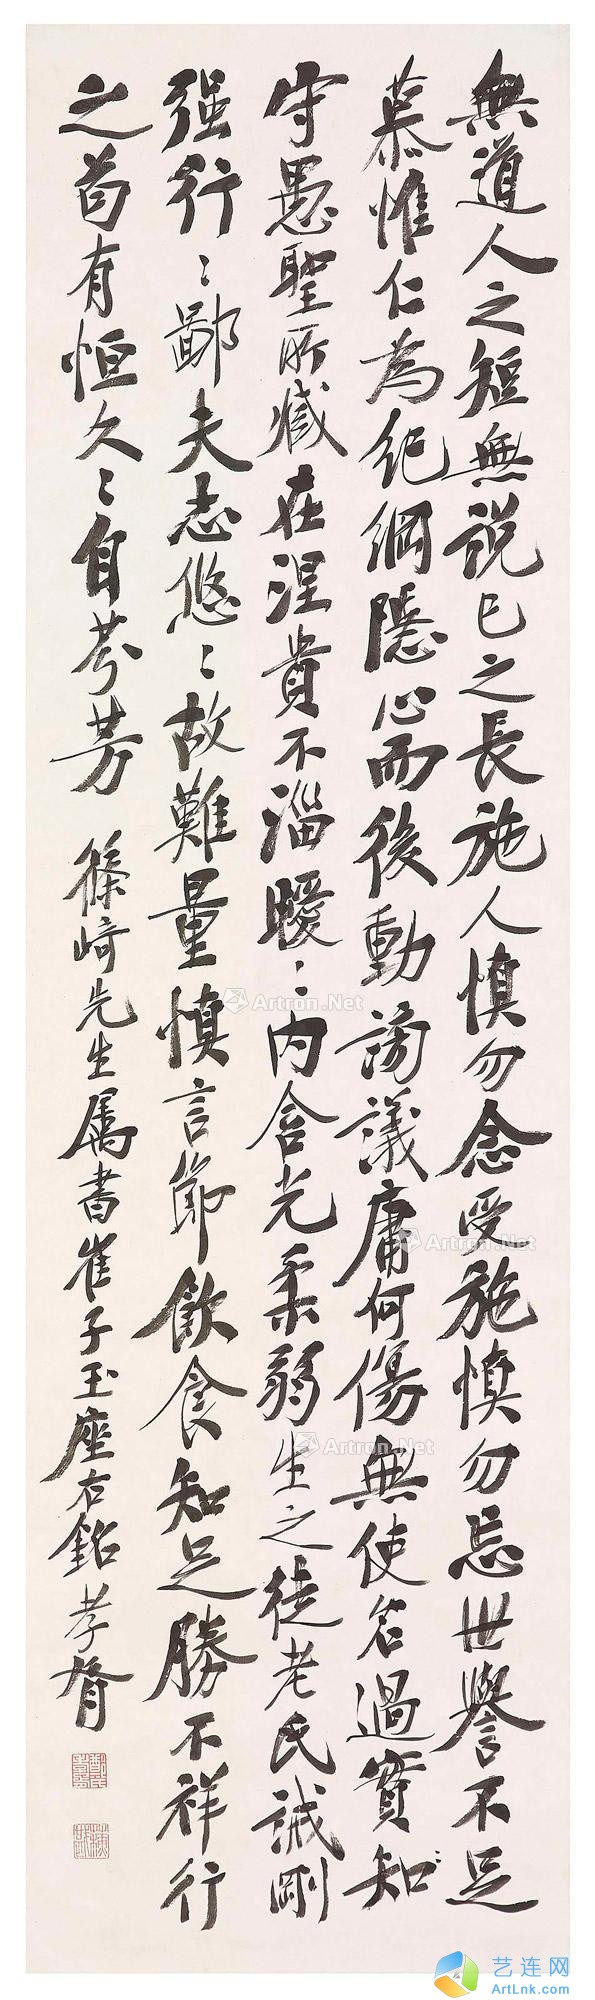 無道人之短無説己之長施人慎勿念受施慎勿忘世譽不足
慕惟仁為紀綱隱心而後動謗議庸何傷無使名過實知
守愚聖所臧在涅貴不淄曖〻内含光柔弱生之徒老氏誡剛
强行〻鄙夫志悠〻故難量慎言節飲食知足勝不祥行
之苟有恒久〻自芬芳 篠崎先生属書崔子玉座右銘 孝胥
Artron.Net
Artron.Net
Artron.Net
艺连网
ArtLnk.com